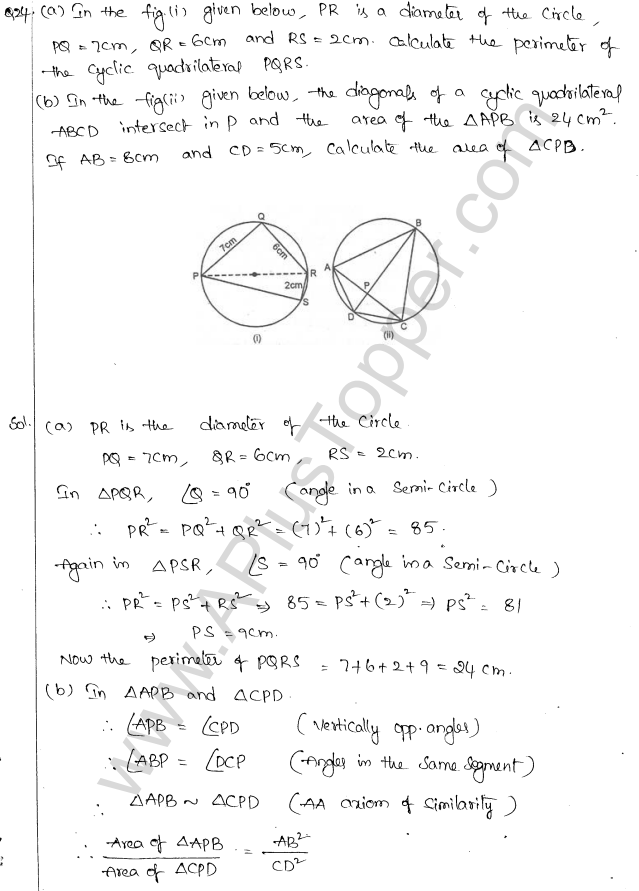 Q24. (a) In the fig.(i) given below, PR is a diameter of the circle,
PQ = 7cm, QR = 6cm and RS = 2cm. Calculate the perimeter of
the cyclic quadrilateral PQRS.
(b) In the fig(ii) given below, the diagonals of a cyclic quadrilateral
ABCD intersect in P and the area of the ΔAPB is 24 cm².
If AB = 8cm and CD = 5cm, Calculate the area of ΔCPD.
Q
7cm
6cm
P
R
2cm
S
(i)
B
A
P
D
C
(ii)
Sol. (a) PR is the diameter of the circle.
PQ = 7cm, QR = 6cm, RS = 2cm.
In ΔPQR, ∠Q = 90° (angle in a semi-circle)
∴ PR² = PQ² + QR² = (7)² + (6)² = 85.
Again in ΔPSR, ∠S = 90° (angle in a semi-circle)
∴ PR² = PS² + RS² ⇒ 85 = PS² + (2)² ⇒ PS² = 81
⇒ PS = 9cm.
Now the perimeter of PQRS = 7+6+2+9 = 24 cm.
(b) In ΔAPB and ΔCPD.
∴ ∠APB = ∠CPD (Vertically opp. angles)
∴ ∠ABP = ∠DCP (Angles in the same segment)
∴ ΔAPB ~ ΔCPD (AA axiom of similarity)
∴ Area of ΔAPB / Area of ΔCPD = AB² / CD²
www.APlusTopper.com